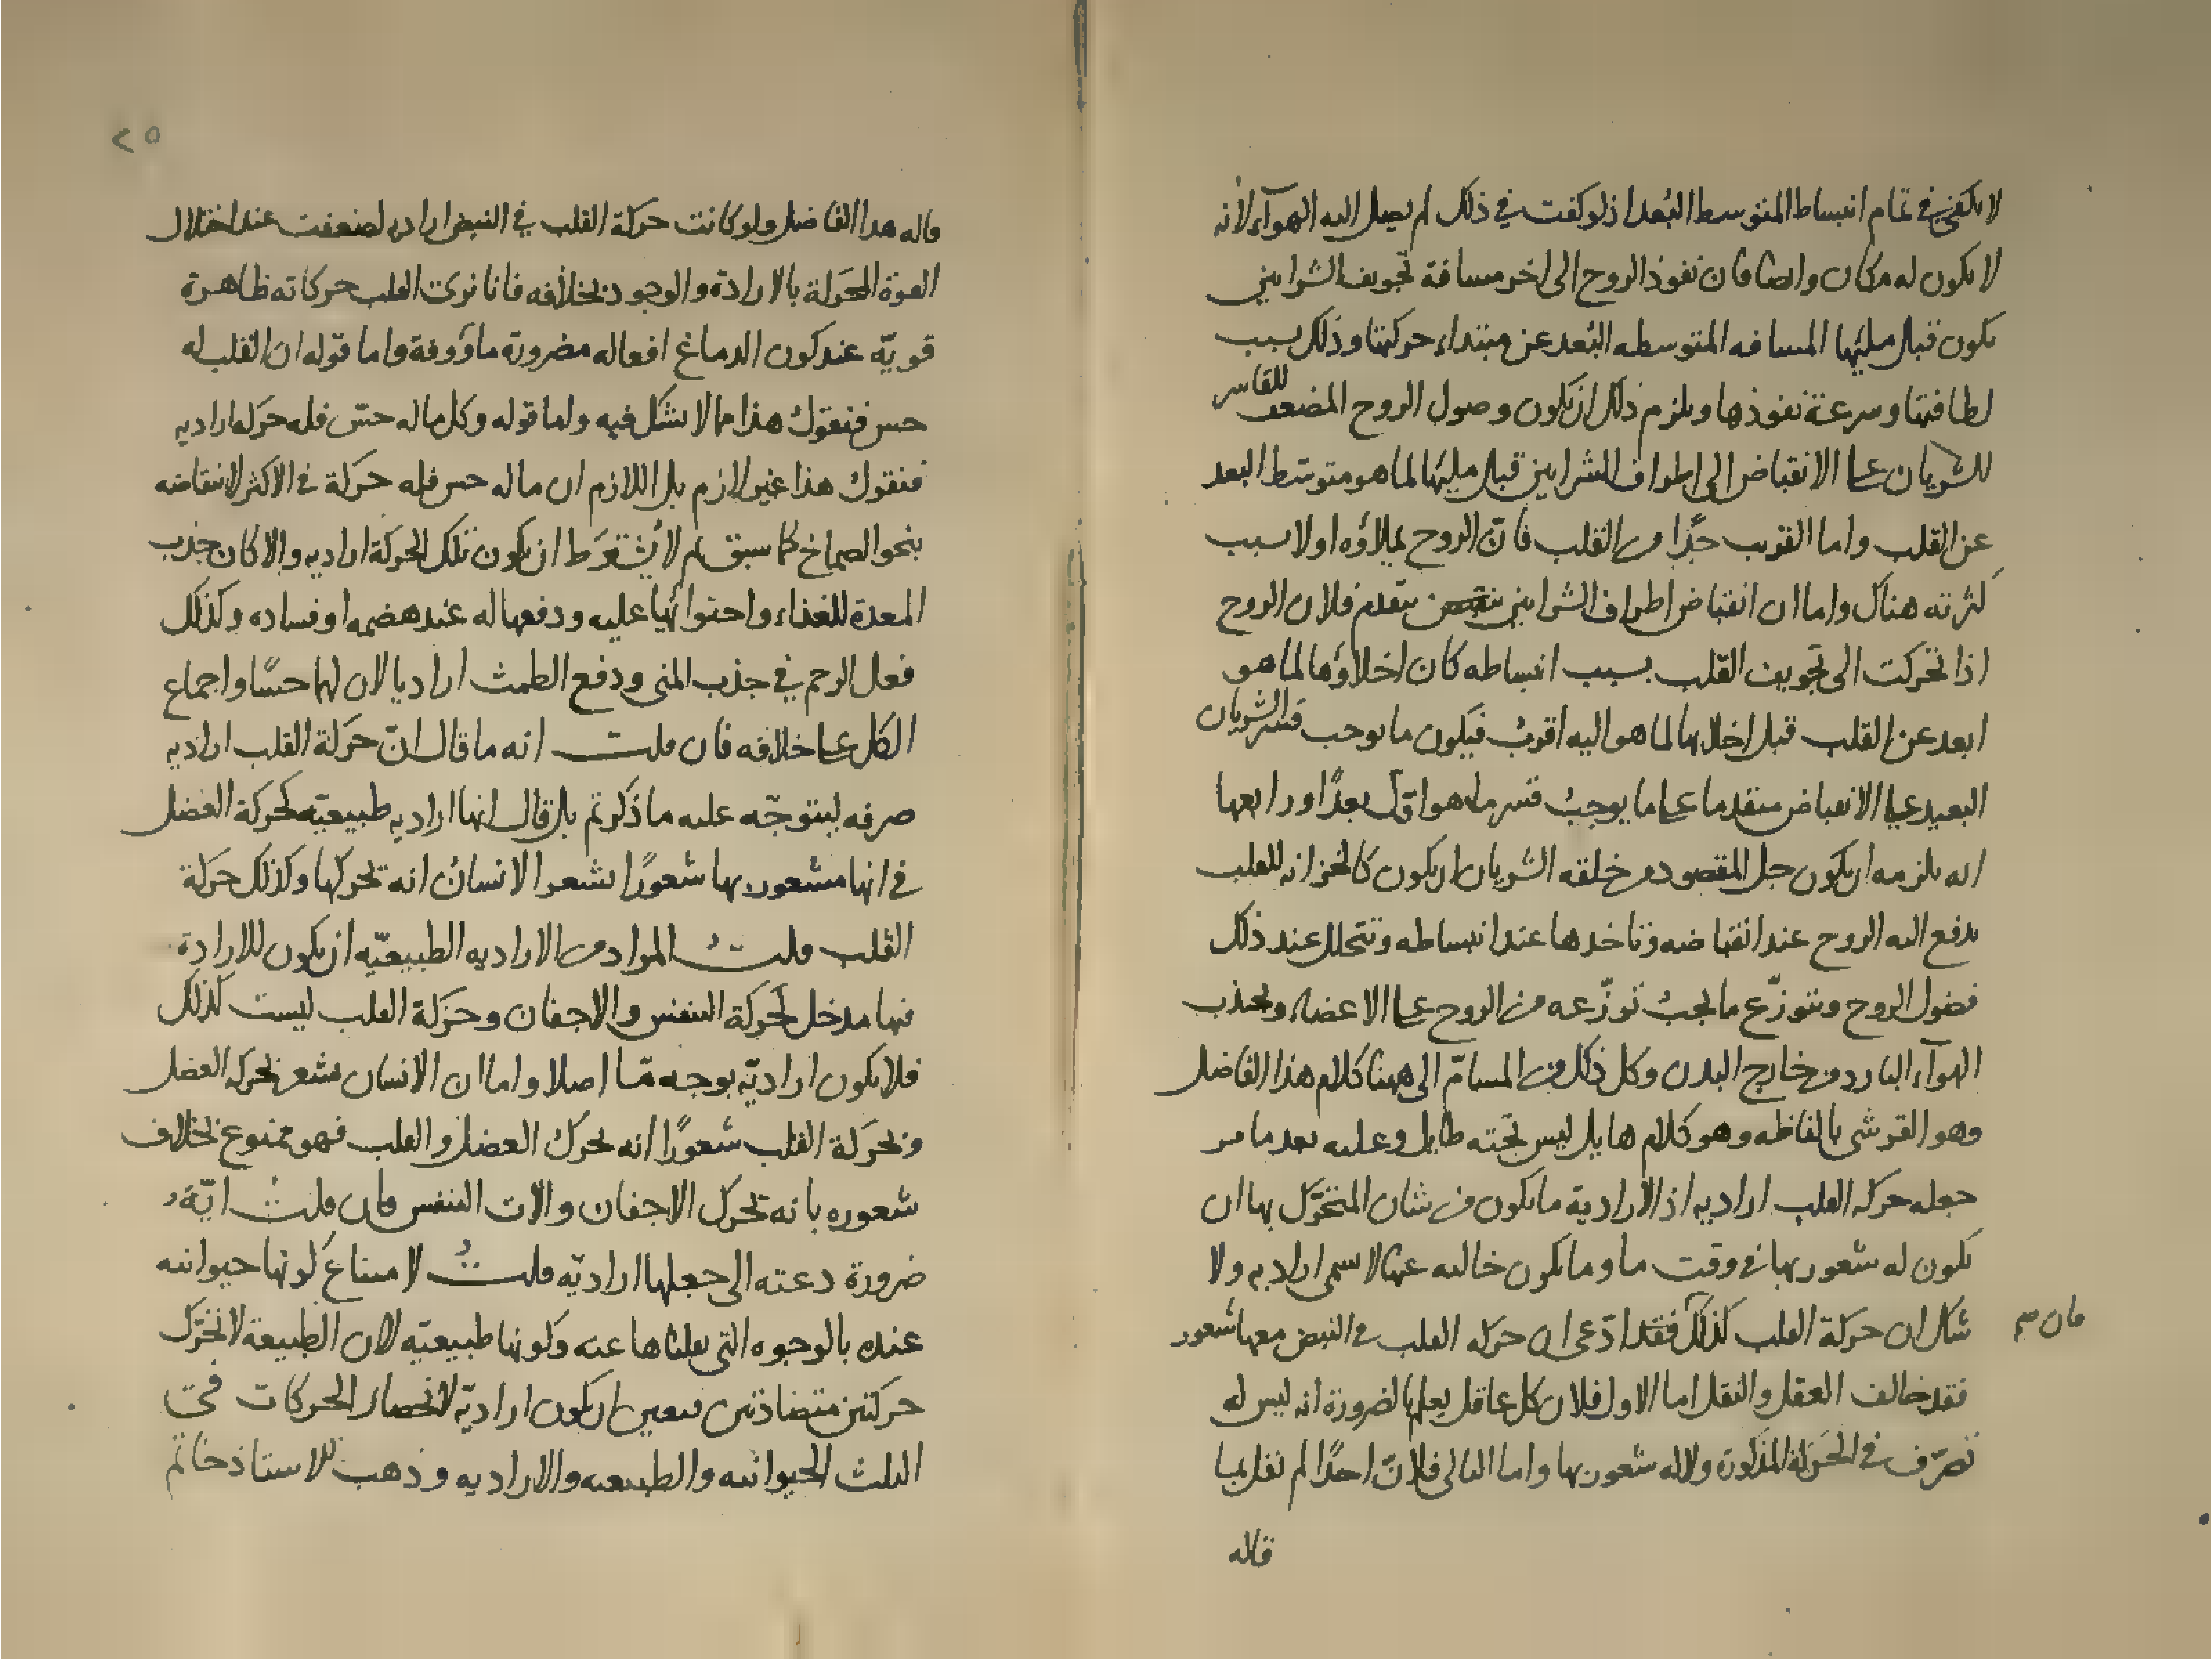 لا يكفي في تمام انبساط المتوسط البُعد اذ لو كفت في ذلك لم يصل اليه الهوآء لانه
لا يكون له مكان وايضا فان نفوذ الروح الى اخر مسافة تجويف الشرايين
يكون قبل مليها المسافه المتوسطه البُعد عن مبتداء حركتها وذلك بسبب
لطافتها وسرعة نفوذها ويلزم ذلك ان يكون وصول الروح المضعف للقاسر
للشريان على الانقباض الى اطراف الشرايين قبل مليها لما هو متوسّط البعد
عن القلب واما القريب جدًا من القلب فانّ الروح يملاؤه اولا بسبب
كثرته هناك واما ان انقباض اطراف الشرايين يتقدم فلان الروح
اذا تحركت الى تجويف القلب بسبب انبساطه كان اخلاؤها لما هو
ابعد عن القلب قبل اخلايها لما هو اليه اقرب فيكون ما يوجب قسر الشريان
البعيد على الانقباض متقدما على ما يوجب قسر ما هو اقلّ بعدًا ورابعها
انه يلزمه ان يكون جل المقصود من خلقه الشريان ان يكون كالخزانه للقلب
يدفع اليه الروح عند انقباضه وتاخدها عند انبساطه وتتحلل عند ذلك
فضول الروح ويتوزّع ما يجب توزّعه من الروح على الاعضاء ويجذب
الهوآء البارد من خارج البدن وكل ذلك من المسامّ الى ههنا كلام هذا الفاضل
وهو القرشى بالفاظه وهو كلام هايل ليس تحته طايل وعليه بعد ما مر
جعله حركه القلب اراديه اذ الاراديه ما يكون من شان المتحرّك بها ان
يكون له شعور بها في وقت ما وما يكون خاليه عنها لا سمى اراديه ولا
شك ان حركة القلب كذلك فقد ادّعى ان حركه القلب في النبض معها شعور
فان
فقد خالف العقل والنقل اما الاول فلان كل عاقل يعلم بالضرورة انه ليس له
تصرّف في الحركة المذكورة ولا له شعور بها واما الثاني فلانّ احدًا لم نقل بما
قاله
٢٥
قاله هدا الفاضل ولو كانت حركة القلب في النبض اراديه لضعفت عند اختلال
القوة المحركة بالارادة والوجود بخلافه فانا نرى القلب حركاته ظاهرة
قويّه عند كون الدماغ افعاله مضرورة ماؤوفة واما قوله ان القلب له
حس فنقول هذا مما لا نشك فيه واما قوله وكل ما له حسّ فله حركه اراديه
فنقول هذا غير لازم بل اللازم ان ما له حس فله حركة في الاكثر لانتقاضه
بنحو الصماخ كما سبق ثم لا يُشترط ان يكون تلك الحركة اراديه والا كان جذب
المعدة للغذاء واحتوائها عليه ودفعها له عند هضمه او فساده وكذلك
فعل الرحم في جذب المنى ودفع الطمث اراديا لان لهما حسًا واجماع
الكل على خلافه فان قلت انه ما قال انّ حركة القلب اراديه
صرفه ليتوجّه عليه ما ذكرتم بل قال انها اراديه طبيعيّه كحركة العضل
في انها مشعور بها شعورًا يشعر الانسان انه تحركها وكذلك حركة
القلب قلت المراد من الاراديه الطبيعيّه ان يكون للارادة
فيها مدخل كحركة التنفس والاجفان وحركة القلب ليست كذلك
فلا يكون اراديّه بوجه مّا اصلا واما ان الانسان يشعر بحركه العضل
وبحركة القلب شعورًا انه يحرك العضل والقلب فهو ممنوع بخلاف
شعوره بانه تحرك الاجفان والات التنفس فان قلت ايّة
ضرورة دعته الى جعلها اراديّه قلت لامتناع كونها حيوانيه
عنده بالوجوه التى نقلناها عنه وكونها طبيعيّه لان الطبيعة لا تحرّك
حركتين متضادتين فتعين ان يكون اراديّه لانحصار الحركات في
الثلث الحيوانيه والطبيعيه والاراديه وذهب الاستاذ خاتم